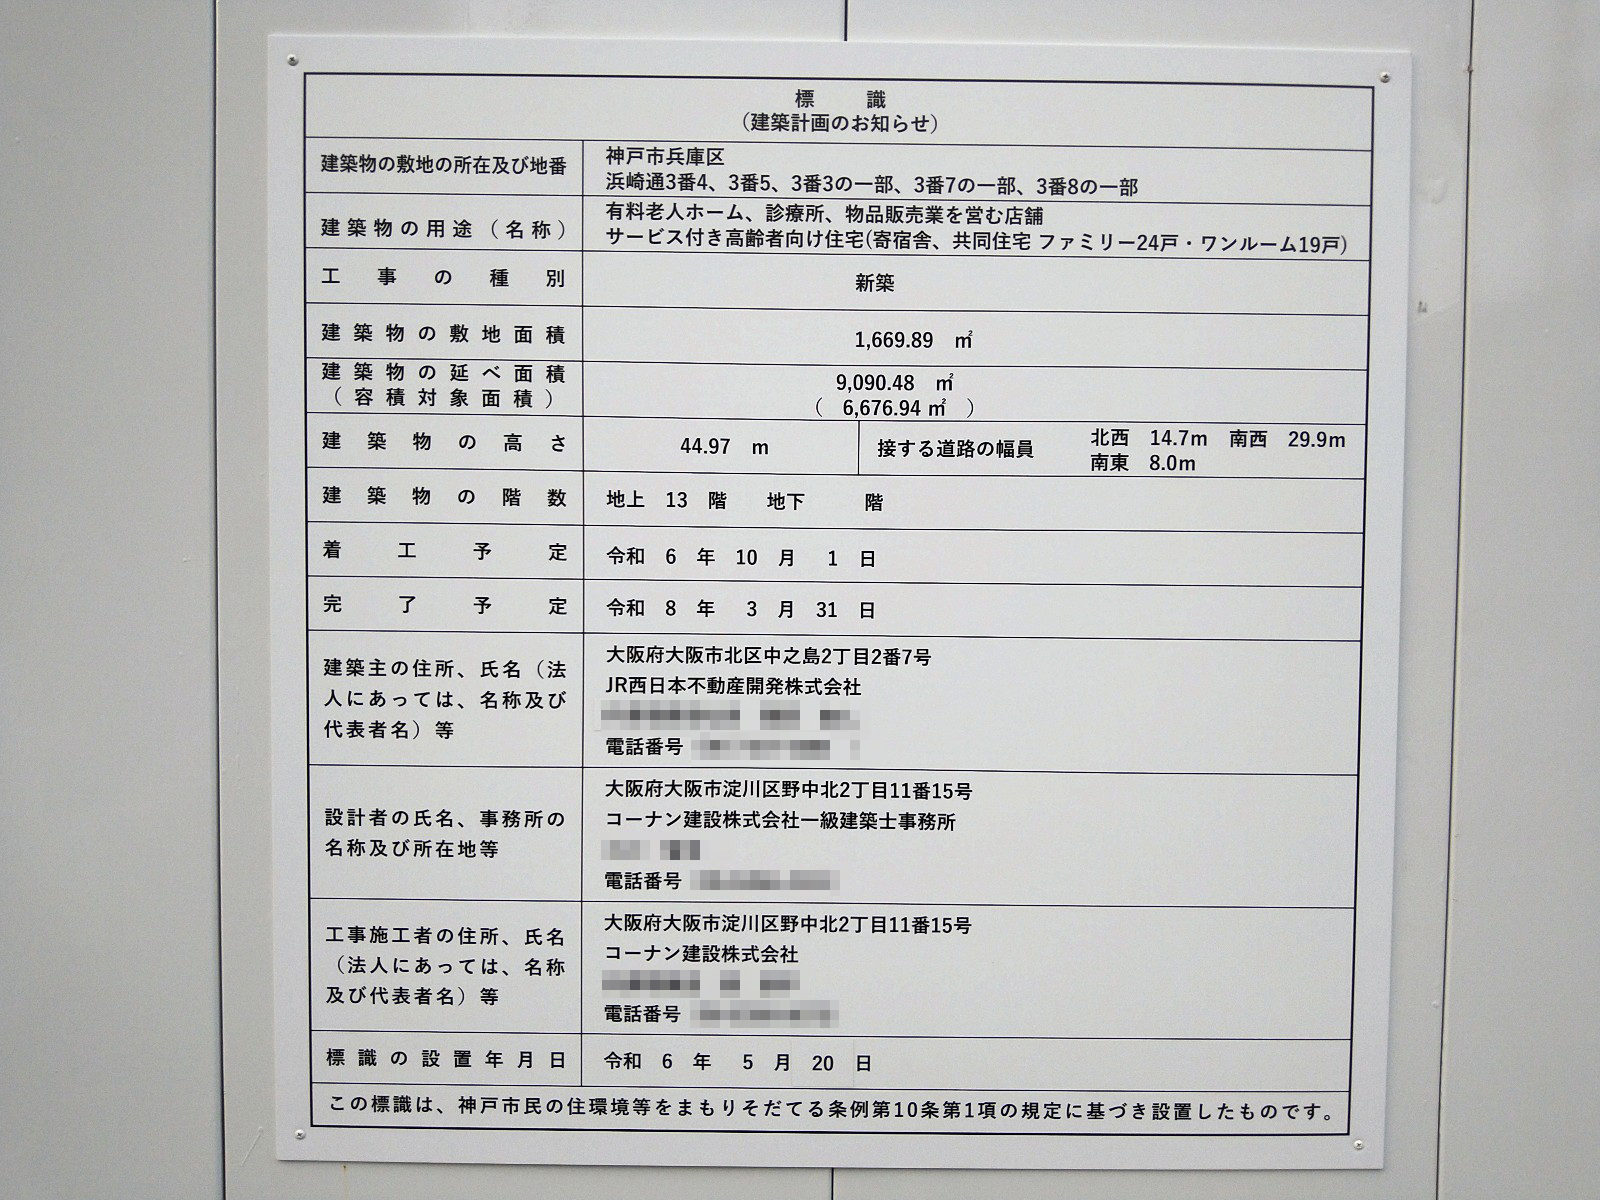 標　識
（建築計画のお知らせ）
建築物の敷地の所在及び地番
神戸市兵庫区
浜崎通3番4、3番5、3番3の一部、3番7の一部、3番8の一部
建築物の用途（名称）
有料老人ホーム、診療所、物品販売業を営む店舗
サービス付き高齢者向け住宅(寄宿舎、共同住宅 ファミリー24戸・ワンルーム19戸)
工事の種別
新築
建築物の敷地面積
1,669.89 ㎡
建築物の延べ面積
（容積対象面積）
9,090.48 ㎡
（ 6,676.94 ㎡ ）
建築物の高さ
44.97 m
接する道路の幅員
北西 14.7m 南西 29.9m
南東 8.0m
建築物の階数
地上 13 階 地下 階
着工予定
令和 6 年 10 月 1 日
完了予定
令和 8 年 3 月 31 日
建築主の住所、氏名（法
人にあっては、名称及び
代表者名）等
大阪府大阪市北区中之島2丁目2番7号
JR西日本不動産開発株式会社
電話番号
設計者の氏名、事務所の
名称及び所在地等
大阪府大阪市淀川区野中北2丁目11番15号
コーナン建設株式会社一級建築士事務所
電話番号
工事施工者の住所、氏名
（法人にあっては、名称
及び代表者名）等
大阪府大阪市淀川区野中北2丁目11番15号
コーナン建設株式会社
電話番号
標識の設置年月日
令和 6 年 5 月 20 日
この標識は、神戸市民の住環境等をまもりそだてる条例第10条第1項の規定に基づき設置したものです。